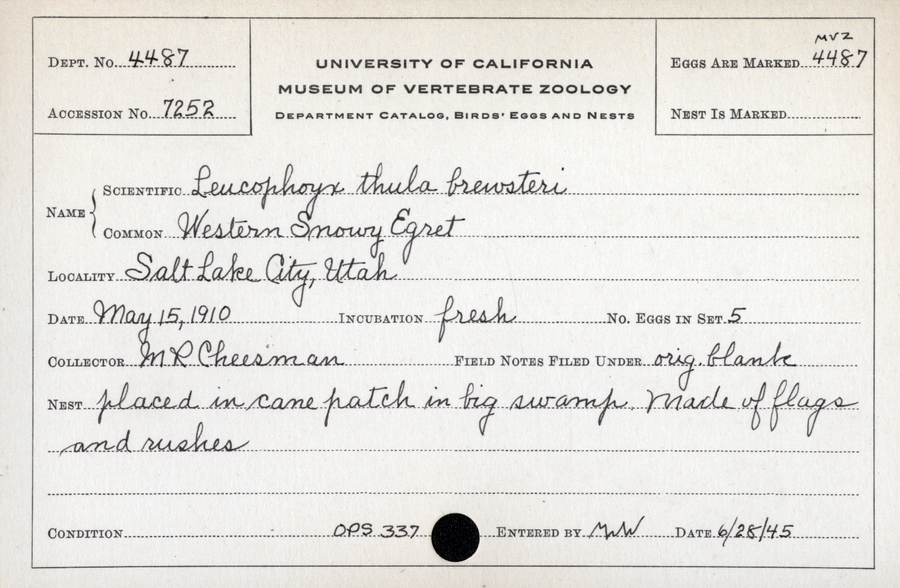 DEPT. No. 4487
ACCESSION No. 7252
UNIVERSITY OF CALIFORNIA
MUSEUM OF VERTEBRATE ZOOLOGY
DEPARTMENT CATALOG, BIRDS' EGGS AND NESTS
MVZ
EGGS ARE MARKED 4487
NEST IS MARKED
NAME
SCIENTIFIC Leucophoyx thula brewsteri
COMMON Western Snowy Egret
LOCALITY Salt Lake City, Utah
DATE May 15, 1910 INCUBATION fresh No. EGGS IN SET 5
COLLECTOR M R Cheesman FIELD NOTES FILED UNDER orig. blank
NEST placed in cane patch in big swamp. Made of flags
and rushes
CONDITION OPS 337 ENTERED BY DATE 6/28/45